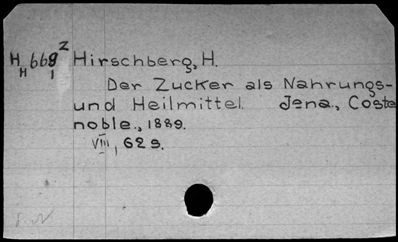 H 669 2 Hirschberg, H.
H 1
Der Zucker als Nahrungs-
und Heilmittel. Jena, Coste
noble, 1889.
VIII, 629.